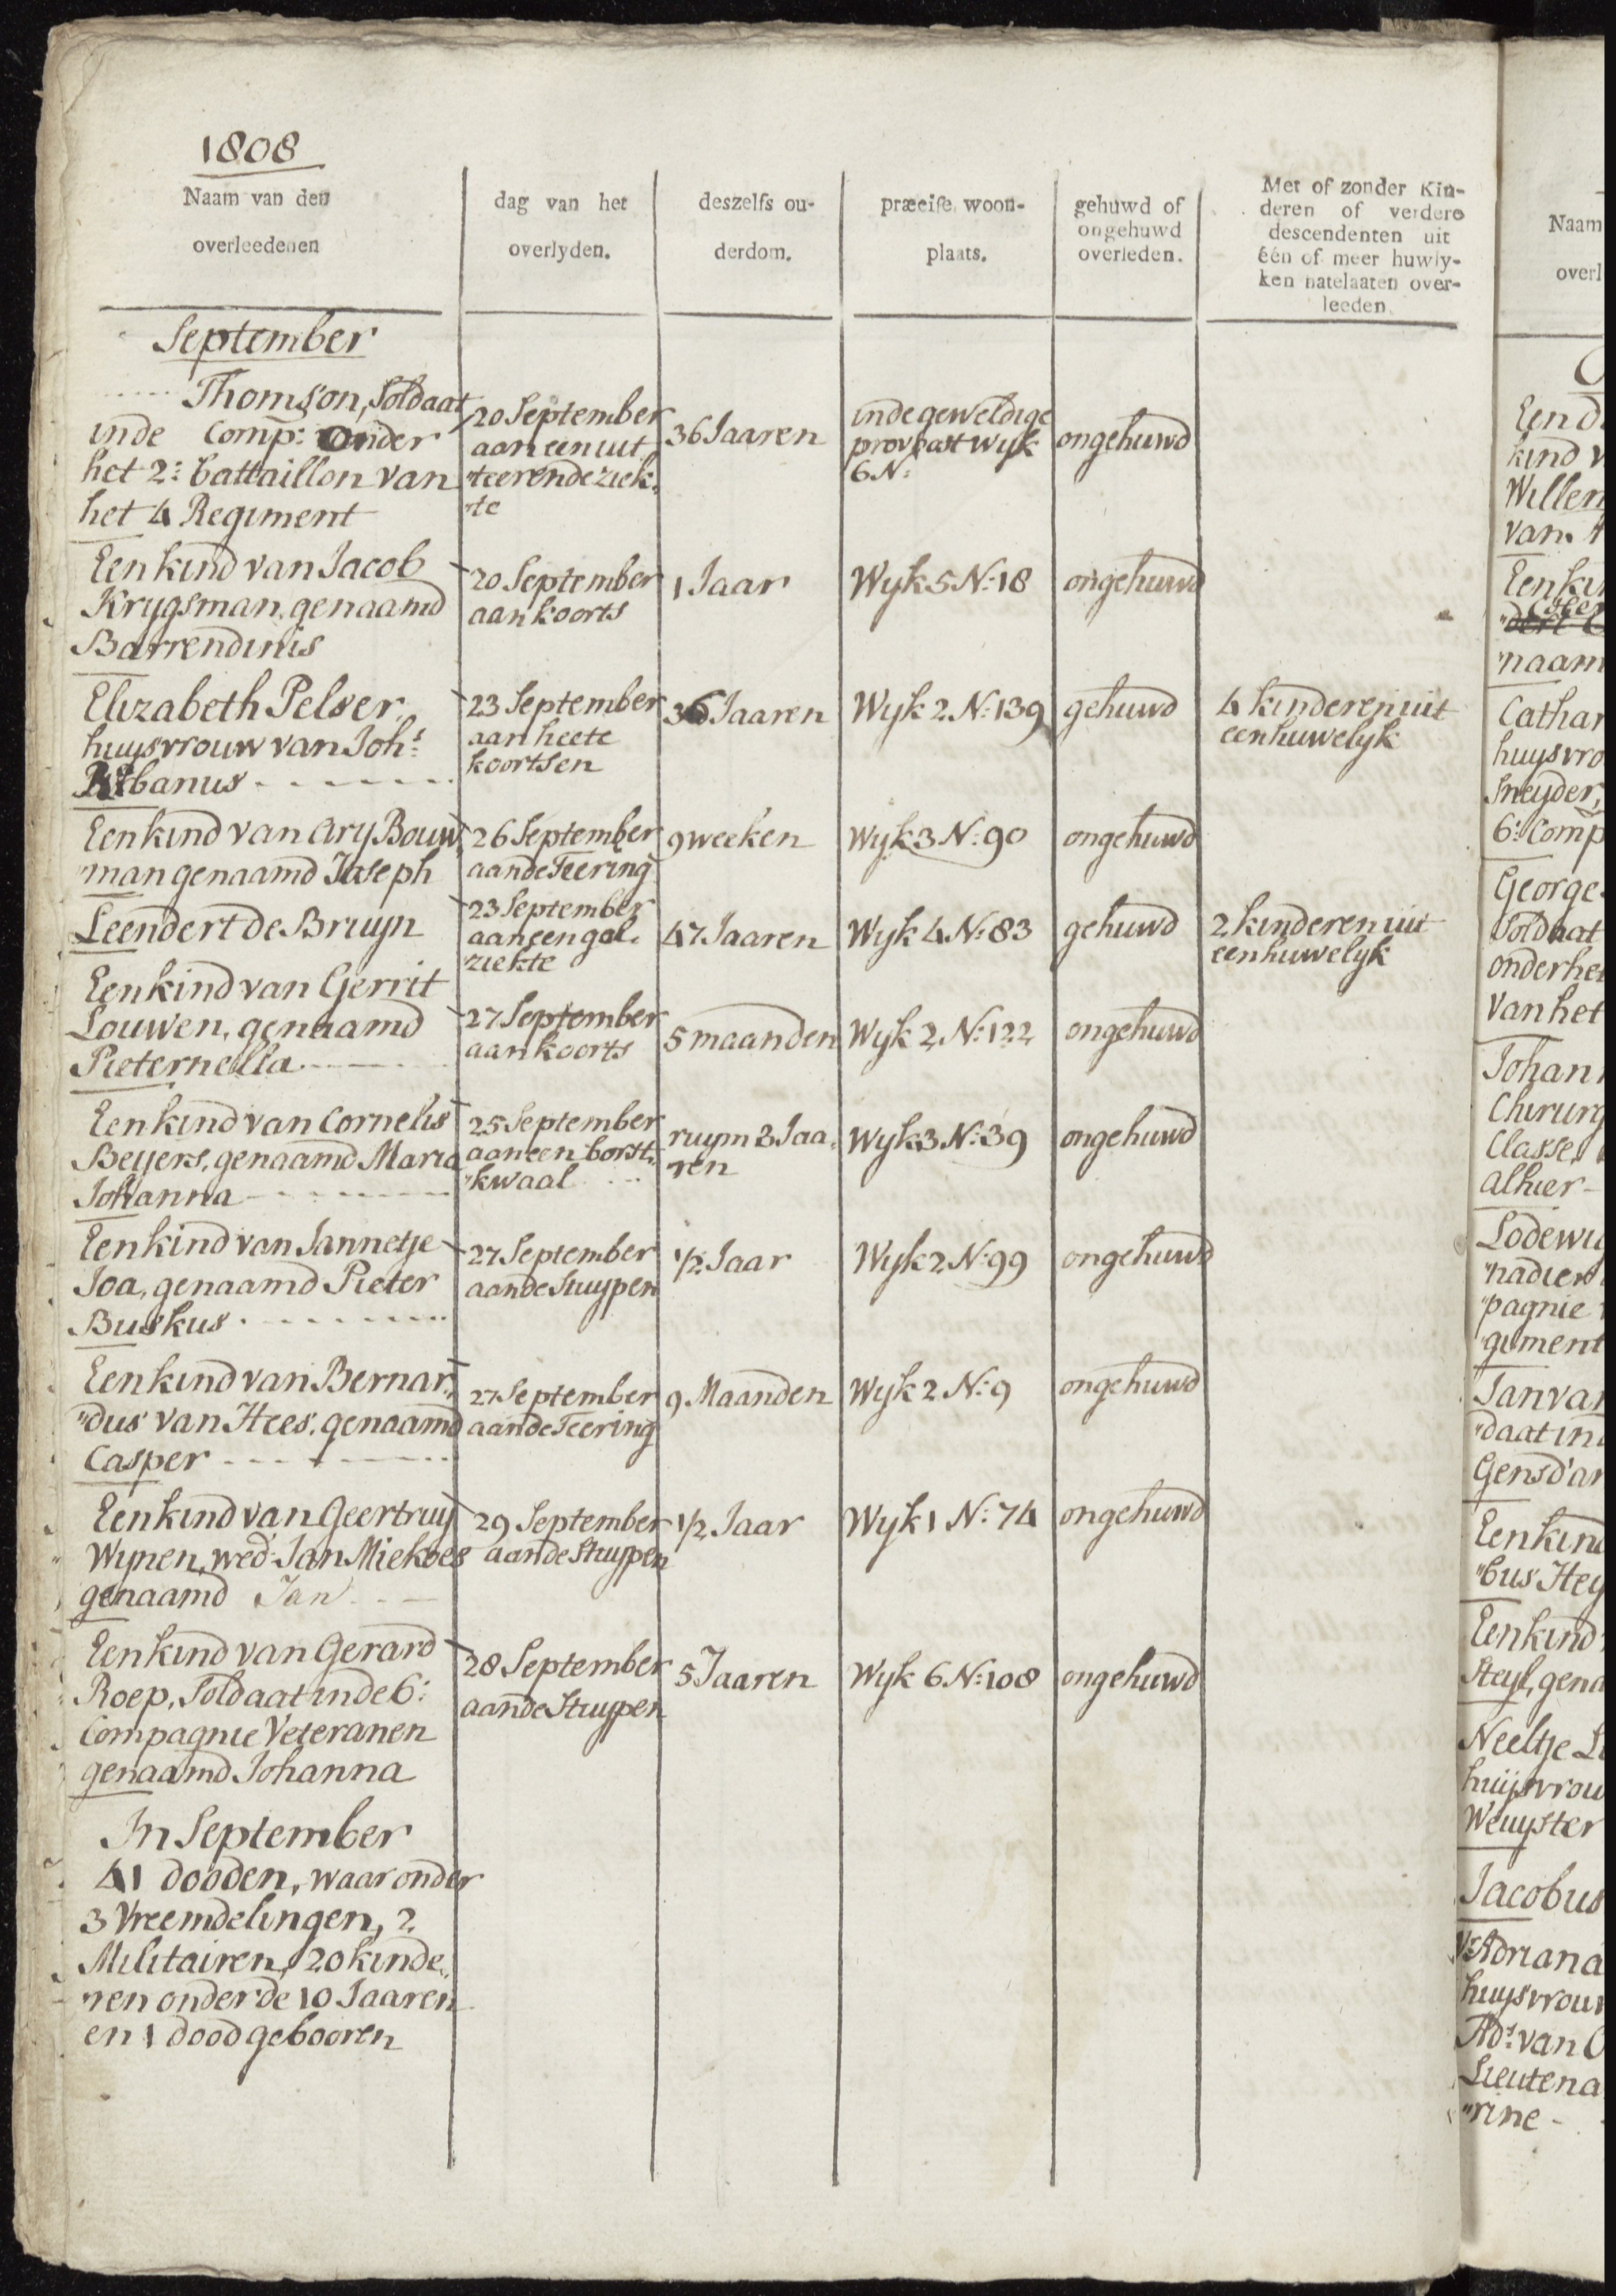 1808
Naam van den
overleedenen
dag van het
overlyden.
deszelfs ou-
derdom.
præcise woon-
plaats.
gehuwd of
ongehuwd
overleden.
Met of zonder Kin-
deren of verdere
descendenten uit
één of meer huwly-
ken natelaaten over-
leeden
September
Thomson, Soldaat
inde Comp: onder
het 2: battaillon van
het 4 Regiment
20 September
aan een uit
"teerende ziek
"te
36 Jaaren
inde geweldige
provoost Wyk
6 N:
ongehuwd
Een kind van Jacob
Krygsman, genaamd
Barrendinis
20 September
aan koorts
1 Jaar
Wyk 5 N: 18
ongehuwd
Elizabeth Pelser
huysvrouw van Johs:
banus
23 September
aan heete
koortsen
36 Jaaren
Wyk 2 N: 139
gehuwd
4 kinderen uit
een huwelyk
Een kind van Ary Bouw
"man genaamd Joseph
26 September
aande Teering
9 weeken
Wyk 3 N: 90
ongehuwd
Leendert de Bruyn
23 September
aan een gal
"ziekte
47 Jaaren
Wyk 4 N: 83
gehuwd
2 kinderen uit
een huwelyk
Een kind van Gerrit
Louwen, genaamd
Pieternella
27 September
aan koorts
5 maanden
Wyk 2 N: 122
ongehuwd
Een kind van Cornelis
Beyers, genaamd Maria
Johanna
25 September
aan een borst
"kwaal
ruym 3 Jaa
"ren
Wyk 3 N: 39
ongehuwd
Een kind van Jannetje
Joa, genaamd Pieter
Buskus
27 September
aande Stuypen
1/2 Jaar
Wyk 2 N: 99
ongehuwd
Een kind van Bernar
"dus van Hees, genaamd
Casper
27 September
aande Teering
9 Maanden
Wyk 2 N: 9
ongehuwd
Een kind van Geertruy
Wynen, wed: Jan Miekoes
genaamd Jan
29 September
aande Stuypen
1/2 Jaar
Wyk 1 N: 74
ongehuwd
Een kind van Gerard
Roep, Soldaat inde 6:
Compagnie Veteranen
genaamd Johanna
28 September
aande Stuypen
5 Jaaren
Wyk 6 N: 108
ongehuwd
In September
41 dooden, waar onder
3 Vreemdelingen, 2
Militairen, 20 kinde
"ren onder de 10 Jaaren
en 1 dood gebooren
Naam
overl
Een d
kind v
Willem
van
Een ki
"naam
Cathar
huysvro
Sneyder,
6: Comp
George
Soldaat
onder he
van het
Johan
Chirurg
Classe,
alhier
Lodewy
"nadier
"pagnie
"giment
Jan van
"daat in
Gensd'ar
Een kind
"bus Hey
Een kind
Steyl, gena
Neeltje L
huijsvrou
Weuyster
Jacobus
Adriana
huysvrouw
Ads: van
Lieutena
"rine